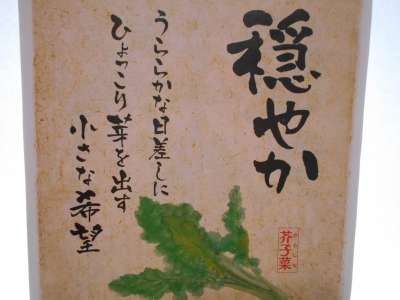 穏やか
うららかな日差しに
ひょっこり芽を出す
小さな希望
芥子菜
からしな